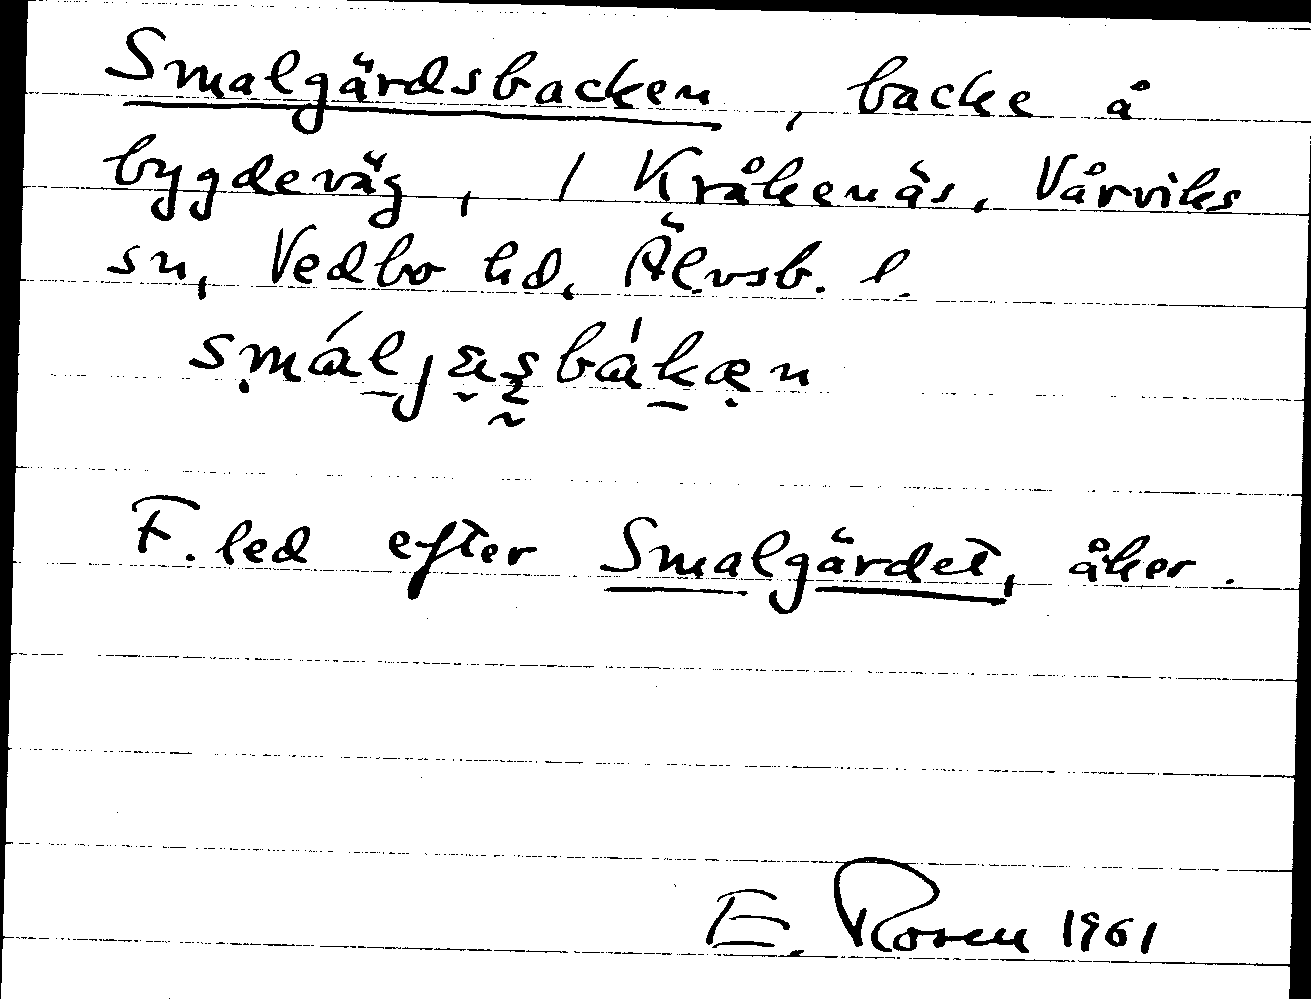 Smalgärdsbacken, backe å
bygdeväg, 1 Kråkenäs, Vårviks
sn, Vedbo hd, Älvsb. l.
F. led efter Smalgärdet, åker.
E. Rosen 1961